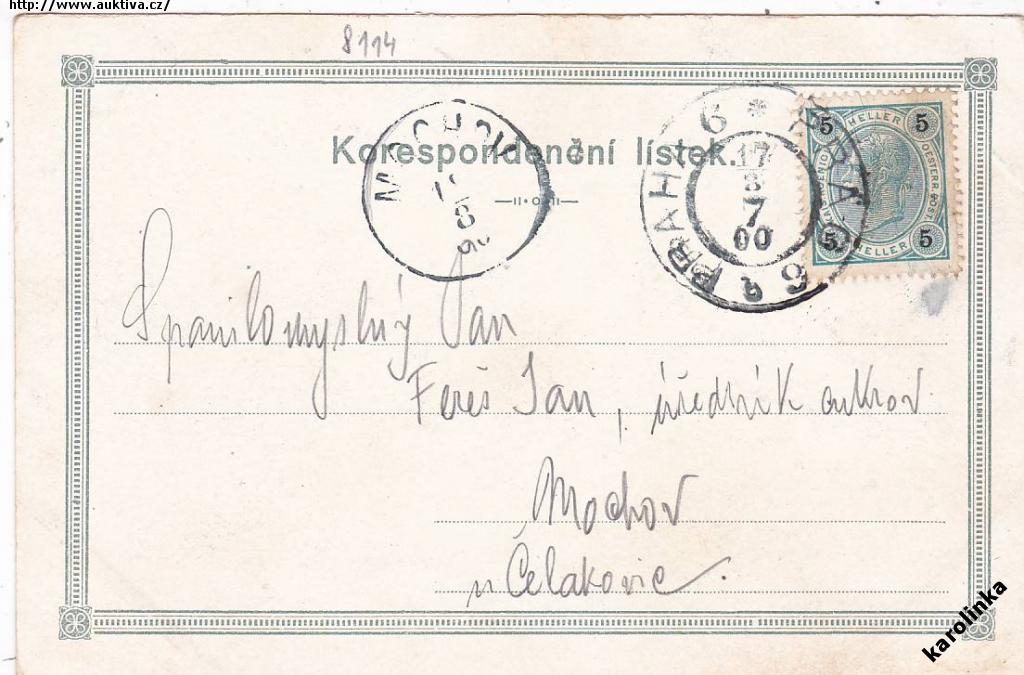 http://www.auktiva.cz/
8114
Korespondenční lístek.
MOCHOV
8
PRAHA 6 * PRAG 6
17
8
7
00
5 HELLER 5
5 HELLER 5
Spanilomyslný Pan
Fereš Jan, úředník cukrov.
Mochov
u Čelakovic.
karolinka